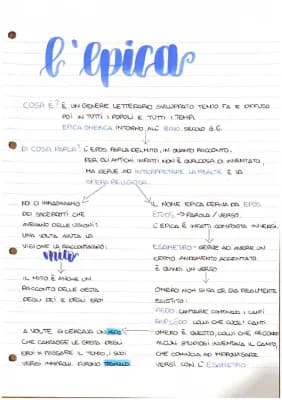 l'epica
COSA E'? È UN GENERE LETTERARIO SVILUPPATO TEMPO FA E DIFFUSO
POI IN TUTTI I POPOLI E TUTTI I TEMPI.
EPICA OMERICA INTORNO ALL' SECOLO a.C.
DI COSA PARLA? L'EPOS PARLA DEL MITO, IN QUANTO RACCONTO.
PER GLI ANTICHI INFATTI NON È QUALCOSA DI INVENTATO,
MA SERVE AD INTERPRETARE LA REALTÀ E LA
SFERA RELIGIOSA
NOI CI IMMAGINIAMO
DEI SACERDOTI CHE
AVEVANO DELLE VISIONI!
UNA VOLTA AVUTA LA
VISIONE LA RACCONTAVANO:
mito
IL MITO È ANCHE UN
RACCONTO DELLE GESTA
DEGLI DEI E DEGLI EROI
A VOLTE SI CERCAVA UN AEDO
CHE CANTASSE LE GESTA DEGLI
EROI X PASSARE IL TEMPO, I SUOI
VERSI FURONO
IL NOME EPICA DERIVA DA EPOS
→ PAROLA / VERSO.
L'EPICA È INFATTI COMPOSTA IN VERSI.
ESAMETRO → SERVE AD AVERE UN
CERTO ANDAMENTO ACCENTATO
È QUINDI UN VERSO
OMERO NON SI SA SE SIA REALMENTE
ESISTITO:
AEDO: CANTAVANO COMPONEVA I CANTI
RAPSODO: COLUI CHE CUCE I CANTI
OMERO È QUESTO, COLUI CHE SECONDO
ALCUNI STUDIOSI INVENTAVA IL CANTO,
CHE COMINCIA AD IMPROVVISARE
VERSI CON L'ESAMETRO